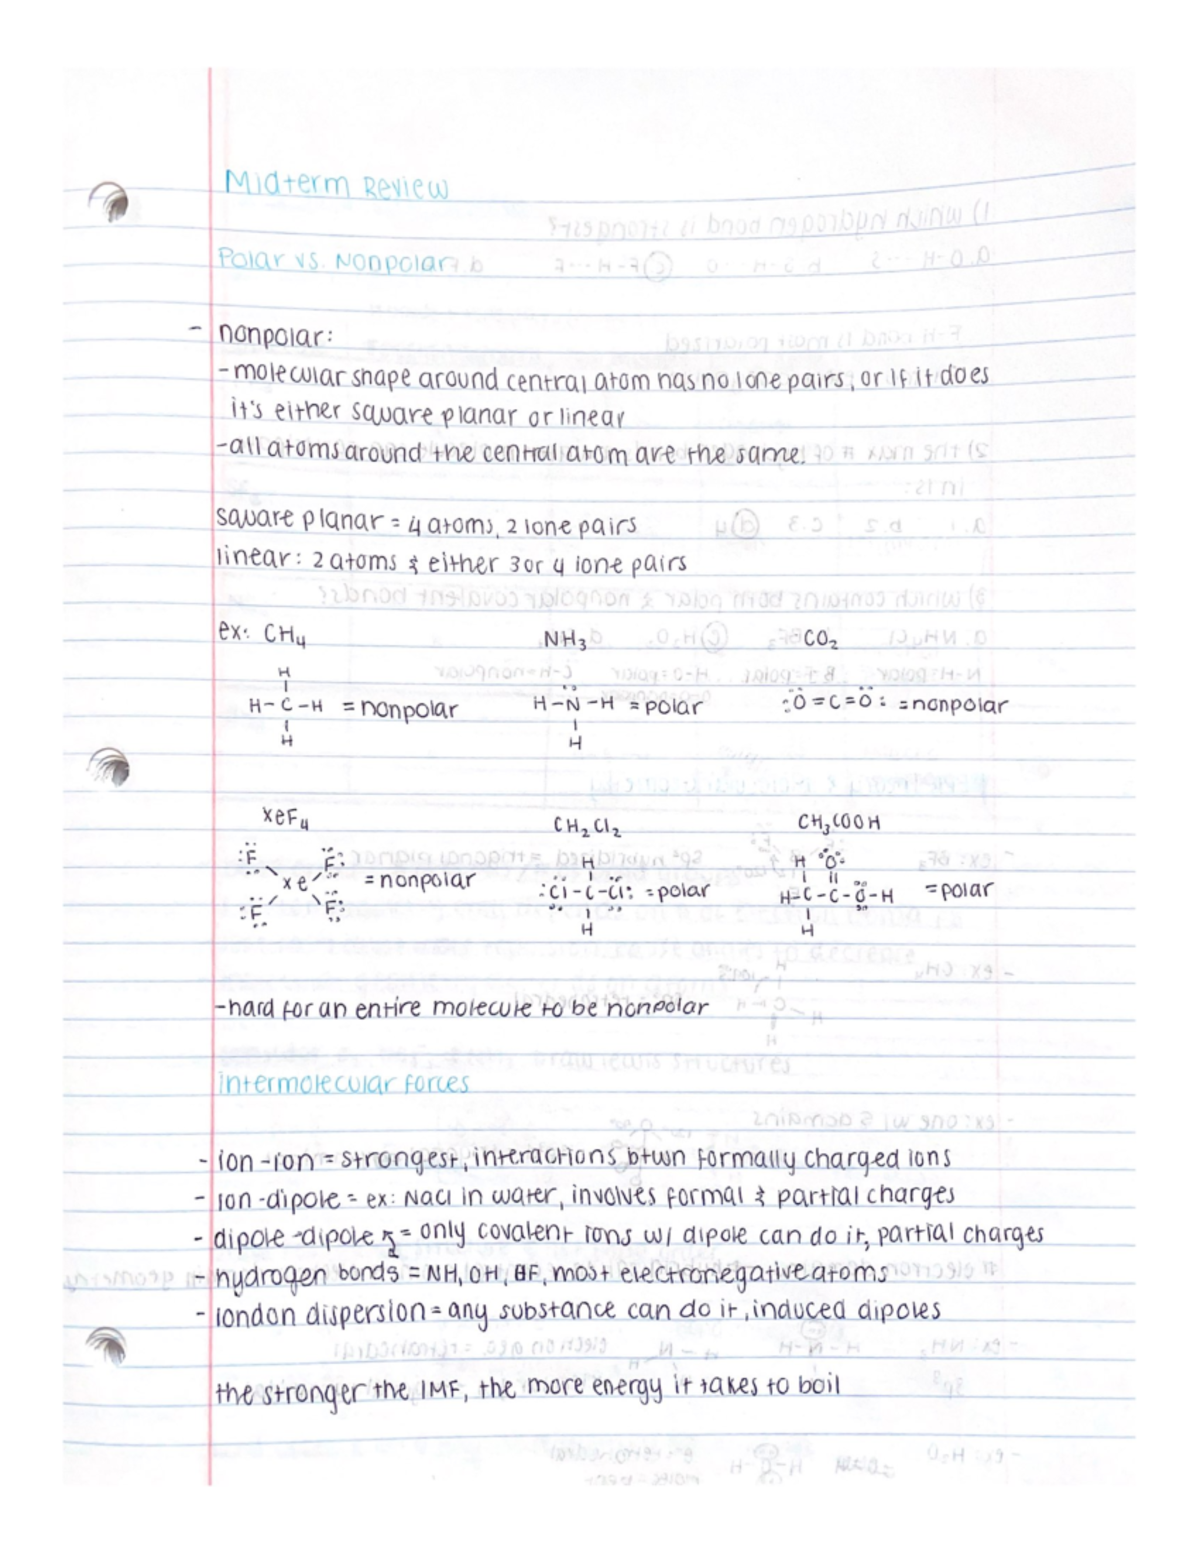 Midterm Review
Polar vs. Nonpolar
- nonpolar:
- molecular shape around central atom has no lone pairs, or if it does
it's either square planar or linear
- all atoms around the central atom are the same.
square planar = 4 atoms, 2 lone pairs
linear: 2 atoms & either 3 or 4 lone pairs
ex: CH4 NH3 CO2
H H-C-H H = nonpolar
H-N-H H = polar
:O=C=O: = nonpolar
XeF4 CH2Cl2 CH3COOH
:F F: Xe :F F: = nonpolar
H :Cl-C-Cl: H = polar
H :O: H-C-C-O-H H = polar
- hard for an entire molecule to be nonpolar
intermolecular forces
- ion-ion = strongest, interactions btwn formally charged ions
- ion-dipole = ex: NaCl in water, involves formal & partial charges
- dipole-dipole = only covalent ions w/ dipole can do it, partial charges
- hydrogen bonds = NH, OH, HF, most electronegative atoms
- london dispersion = any substance can do it, induced dipoles
the stronger the IMF, the more energy it takes to boil